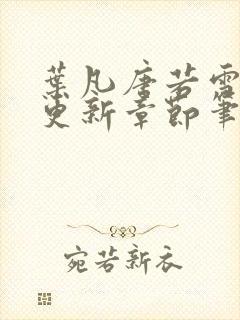 葉凡唐若雪
更新章節筆
宛若新衣